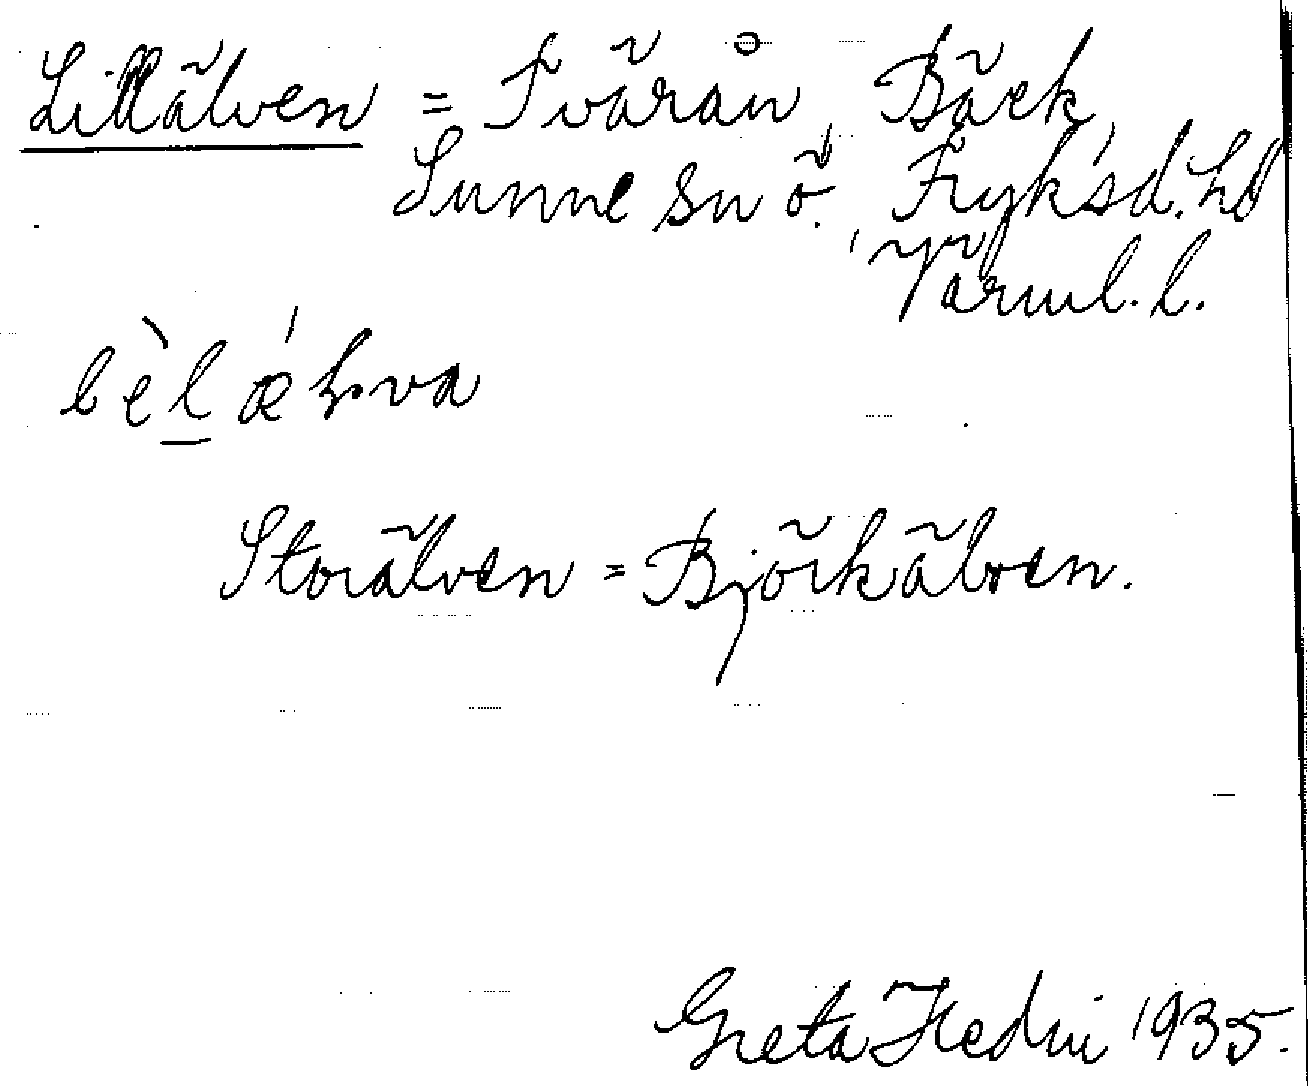 Lillälven = Tvärån, Bäck,
Sunne sn ö., Fryksd. hd
Värml. l.
Storälven = Björkälven.
Greta Hedin 1935.